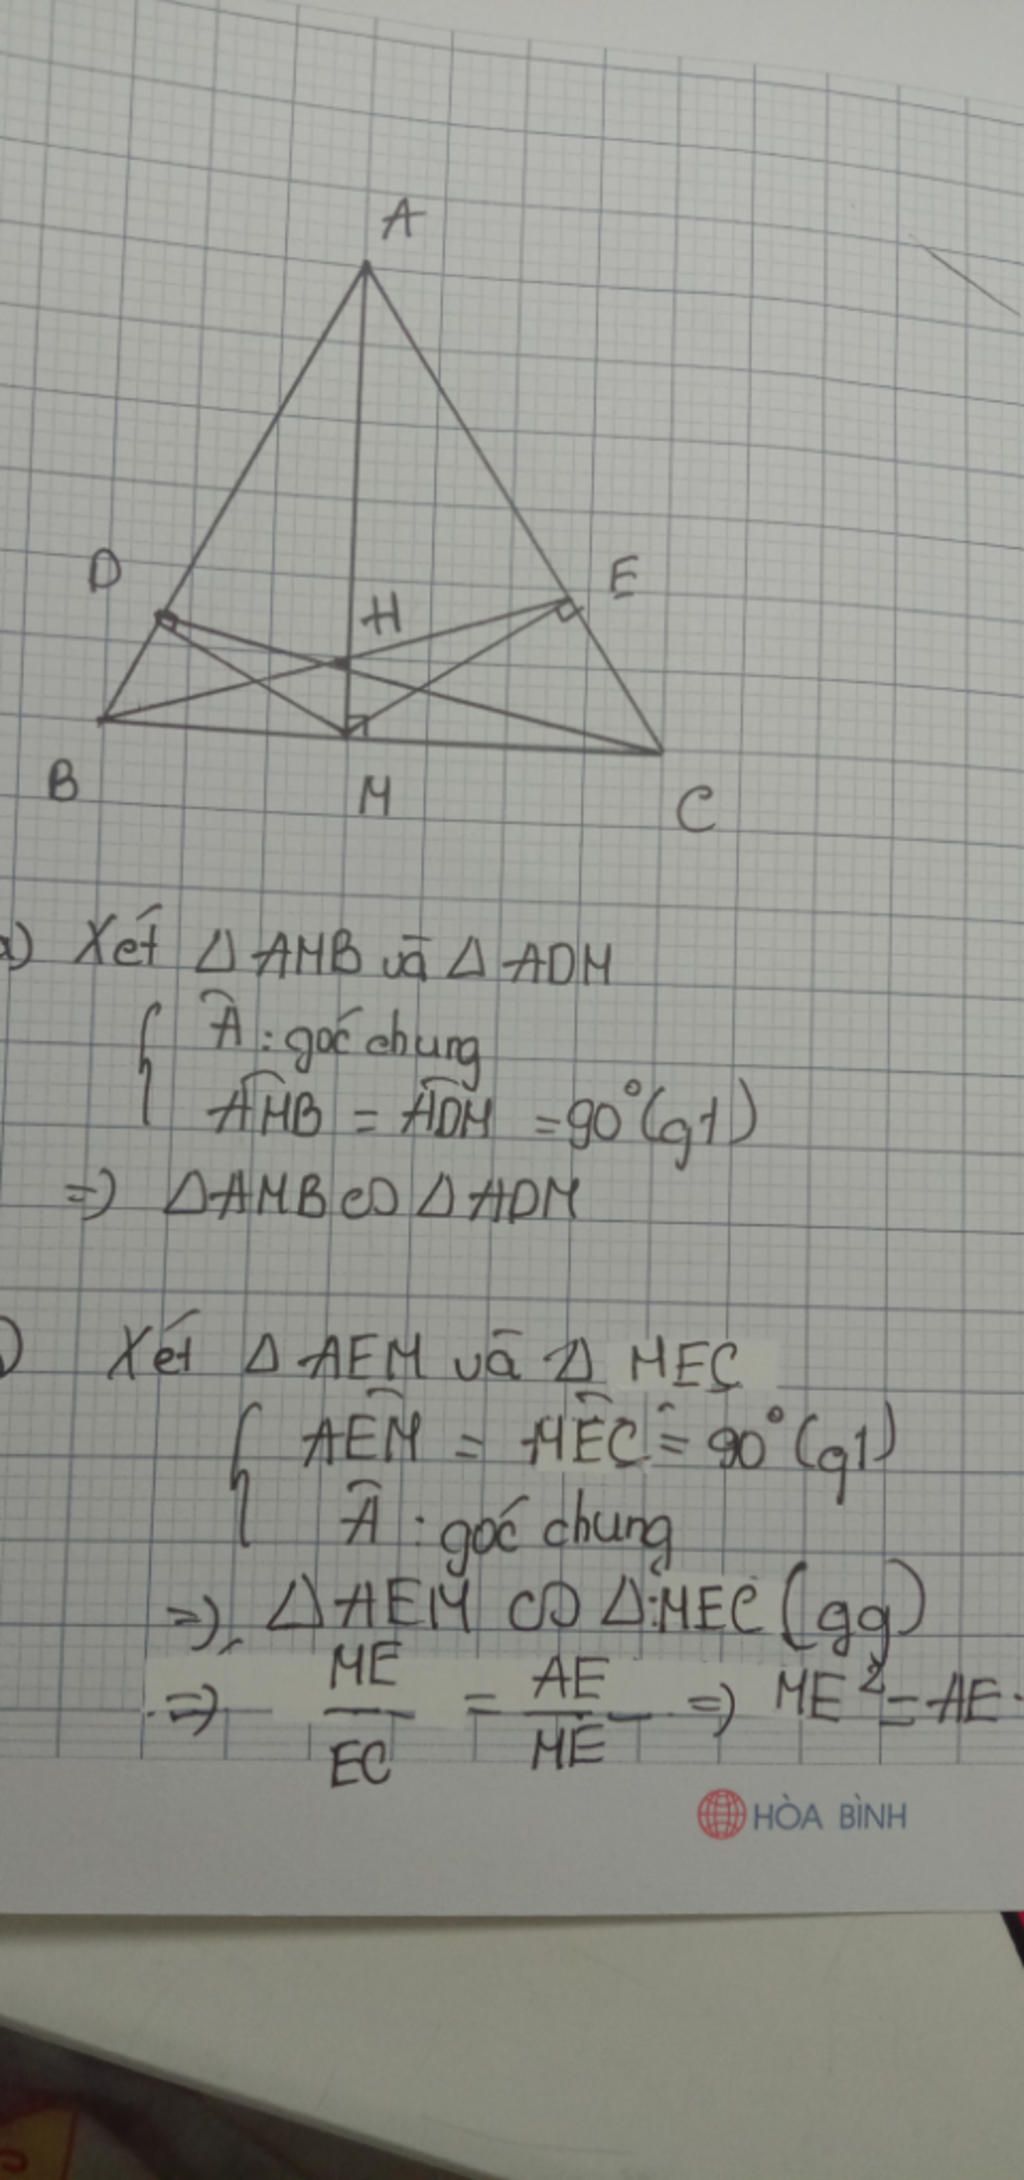 A
D
H
E
B
M
C
a) Xét Δ AMB và Δ ADM
Â : góc chung
AMB = ADM = 90° (gt)
=> Δ AMB ∽ Δ ADM
Xét Δ AEM và Δ MEC
AEM = MEC = 90° (gt)
Â : góc chung
=> Δ AEM ∽ Δ MEC (gg)
=> ME/EC = AE/ME => ME² = AE.
HÒA BÌNH